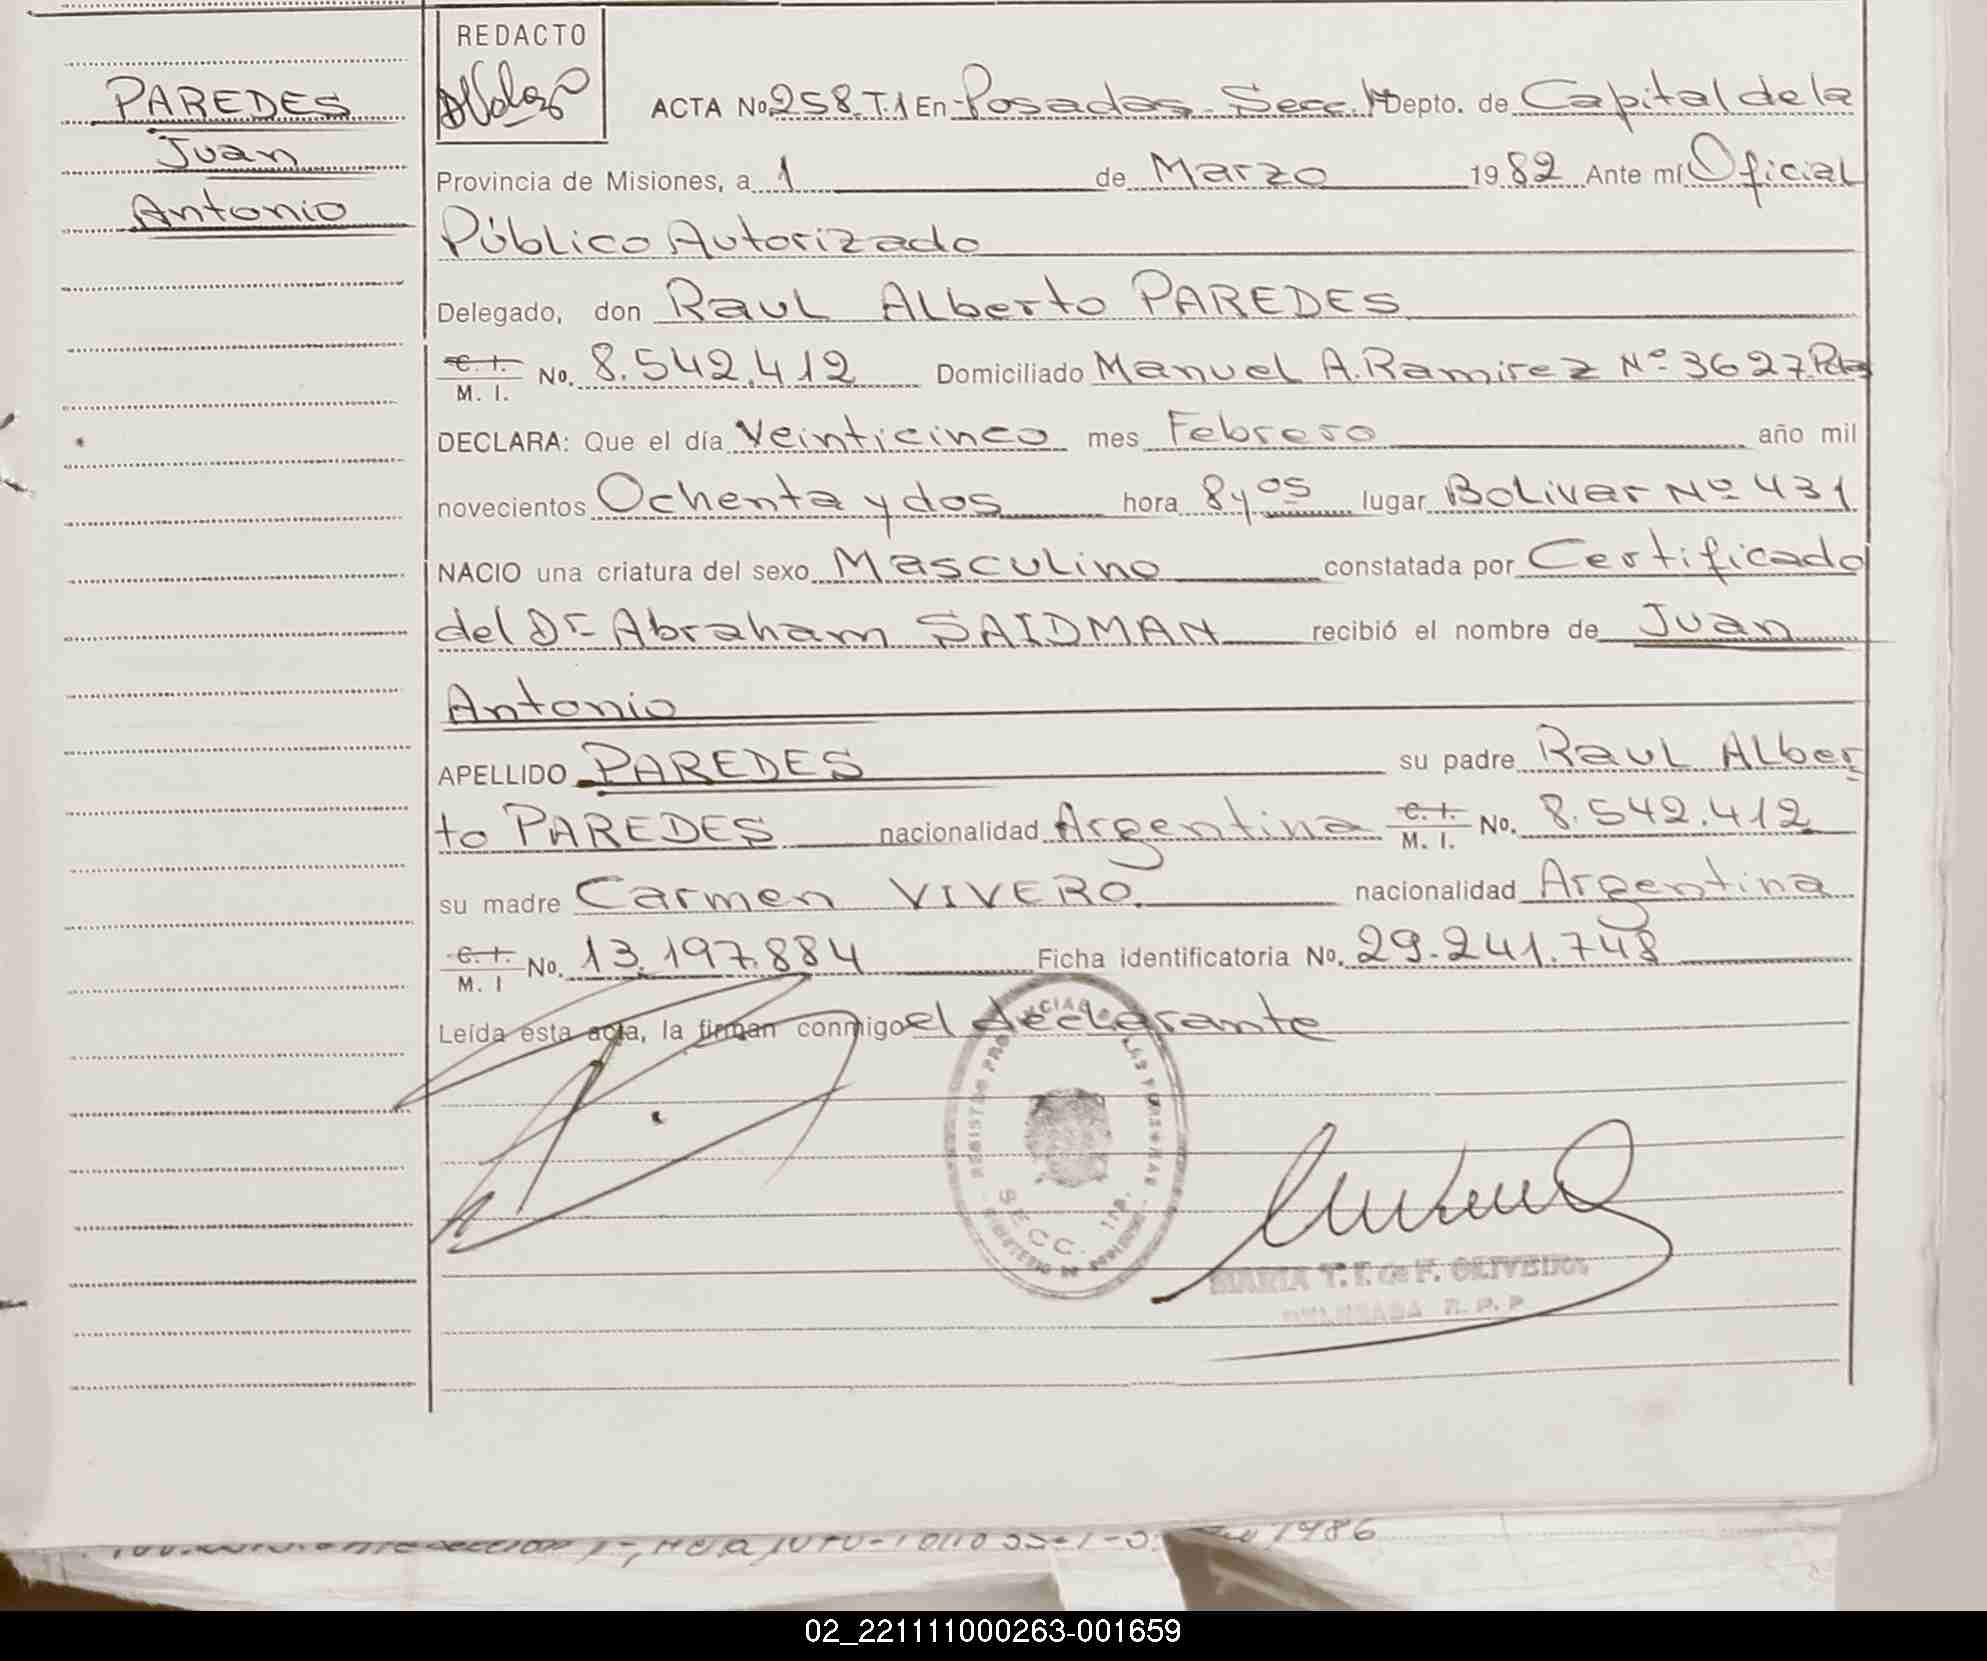 PAREDES
Juan
Antonio
REDACTO
ACTA No 258 T.1 En Posadas Secc. 1ª Depto. de Capital de la
Provincia de Misiones, a 1 de Marzo 1982 Ante mí Oficial
Público Autorizado
Delegado, don Raul Alberto PAREDES
C. I. M. I. No. 8.542.412 Domiciliado Manuel A. Ramirez Nº 3627 Pdas
DECLARA: Que el día Veinticinco mes Febrero año mil
novecientos Ochenta y dos hora 8 y 05 lugar Bolivar Nº 431
NACIO una criatura del sexo Masculino constatada por Certificado
del Dr Abraham SAIDMAN recibió el nombre de Juan
Antonio
APELLIDO PAREDES su padre Raul Alber
to PAREDES nacionalidad Argentina C. I. M. I. No. 8.542.412
su madre Carmen VIVERO nacionalidad Argentina
C. I. M. I No. 13.197.884 Ficha identificatoria No. 29.241.748
Leída esta acta, la firman conmigo el declarante
REGISTRO PROVINCIAL DE LAS PERSONAS
SECC. 1ra.
MINISTERIO DE GOBIERNO
MARIA T. F. de F. OLIVEIRA
R. P. P
1986
02_221111000263-001659